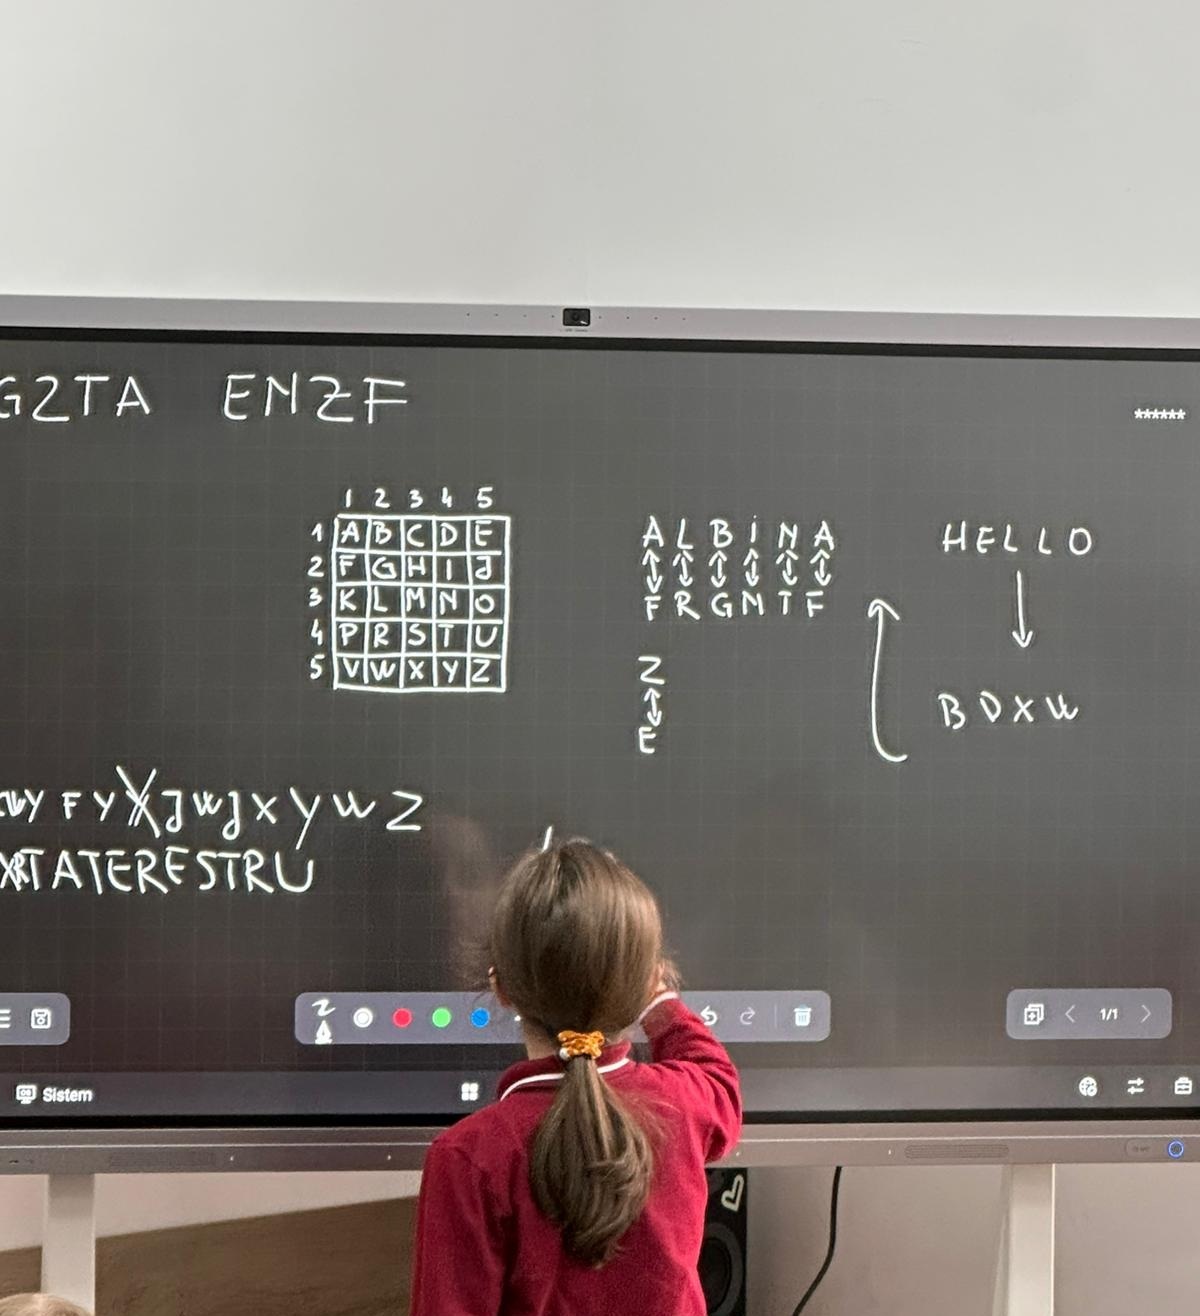 GZTA ENZF
******
1 2 3 4 5
1 A B C D E
2 F G H I J
3 K L M N O
4 P R S T U
5 V W X Y Z
A L B i N A
F R G M T F
Z
E
H E L L O
B D X W
WY F Y X J W J X Y W Z
RTATERESTRU
1/1
Sistem